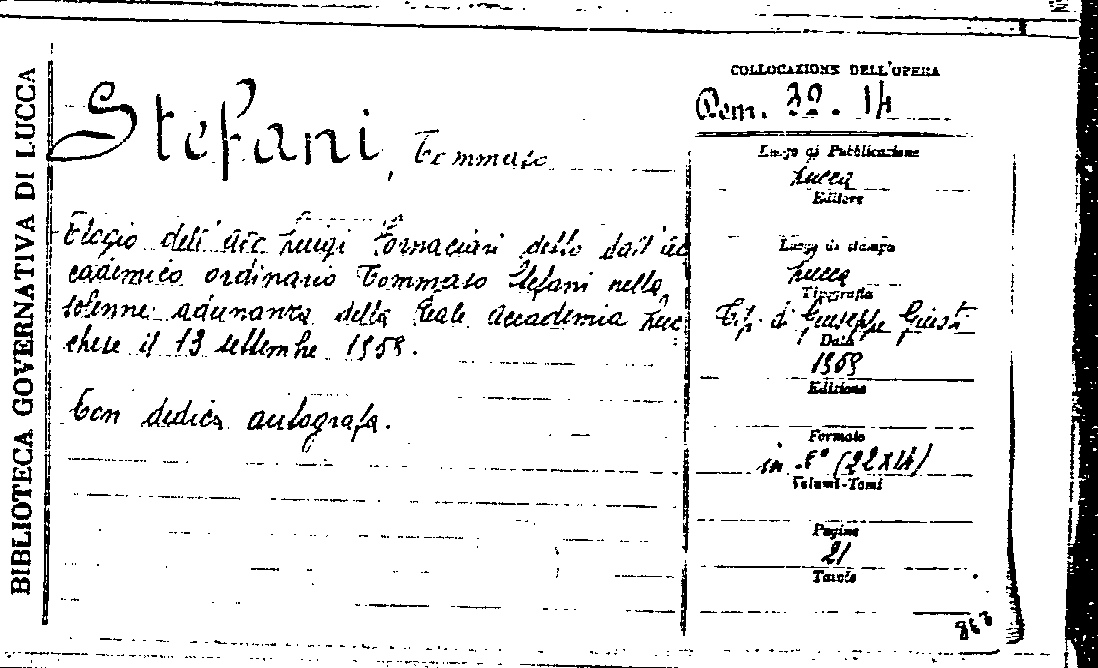 BIBLIOTECA GOVERNATIVA DI LUCCA
Stefani, Tommaso
Elogio dell'avv. Luigi Fornaciari detto dall'ac
cademico ordinario Tommaso Stefani nella
solenne adunanza della Reale Accademia Luc
chese il 13 settembre
Con dedica autografa.
COLLOCAZIONE DELL'OPERA
32.14
Luogo di Pubblicazione
Lucca
Editore
Luogo di stampa
Lucca
Tipografia
Tip. di Giuseppe Giusti
Data
Edizione
Formato
in 8° (22x14)
Volumi-Tomi
Pagine
21
Tavole